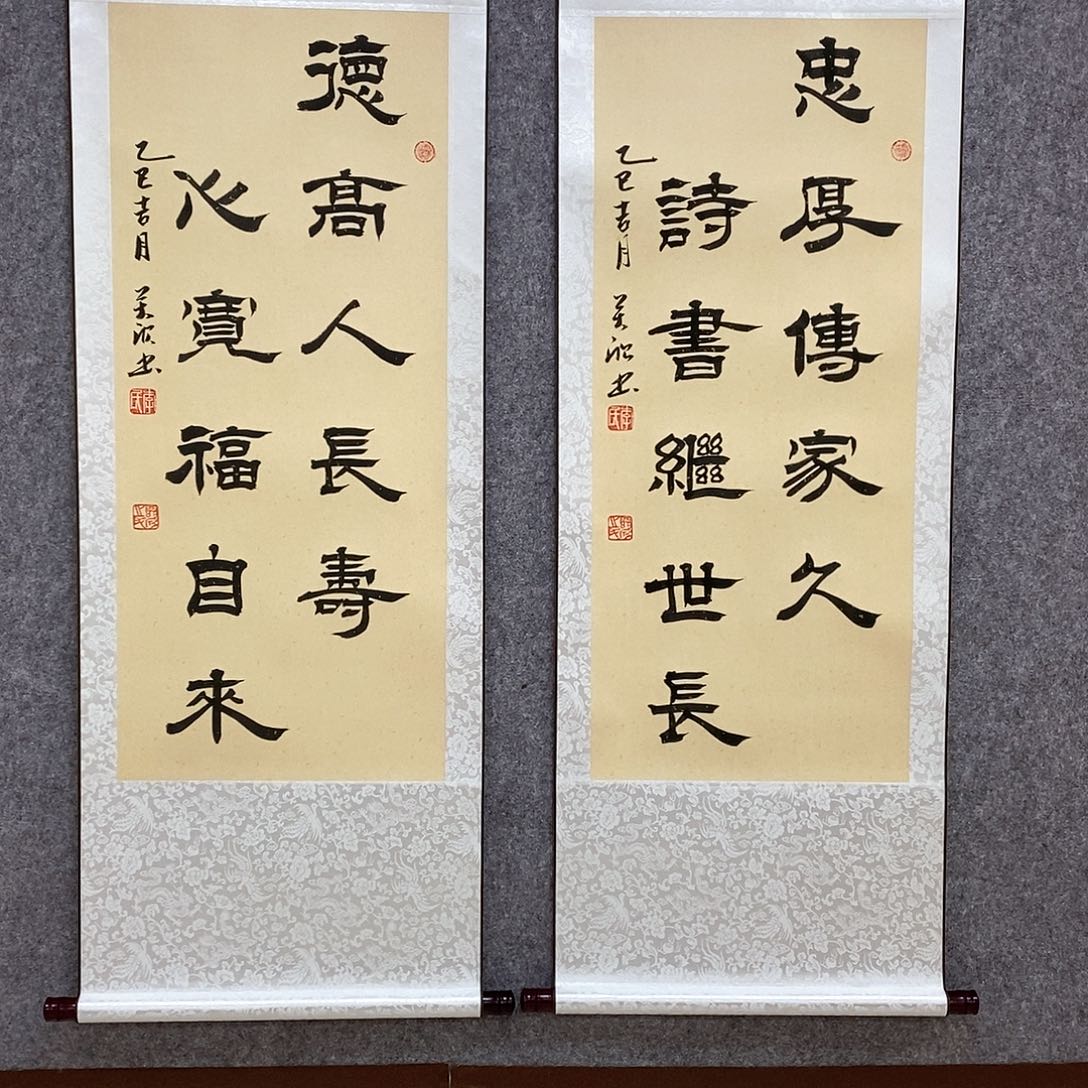 忠厚傳家久
詩書繼世長
乙巳吉月
德高人長壽
心寬福自來
乙巳吉月